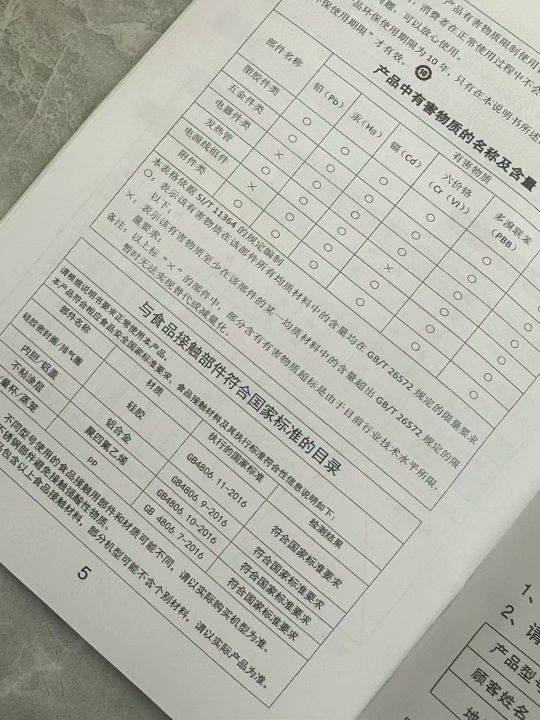 产品有害物质限制使用
消费者在正常使用过程中不会
问题，可以放心使用。
产品环保使用期限为 10 年，只有在本说明书所述
保使用期限”才有效。
10
产品中有害物质的名称及含量
部件名称 有害物质
铅(Pb) 汞(Hg) 镉(Cd) 六价铬(Cr(VI)) 多溴联苯(PBB)
塑胶件类
五金件类
电器件类
发热管
电源线组件
附件类
本表格依据 SJ/T 11364 的规定编制
○：表示该有害物质在该部件所有均质材料中的含量均在 GB/T 26572 规定的限量要求
以下；
×：表示该有害物质至少在该部件的某一均质材料中的含量超出 GB/T 26572 规定的限
量要求；
备注：以上标“×”的部件中，部分含有有害物质超标是由于目前行业技术水平所限，
暂时无法实现替代或减量化。
与食品接触部件符合国家标准的目录
请根据说明书要求正常使用本产品。
本产品符合相应食品安全国家标准要求，食品接触材料及其执行标准符合性信息说明如下：
部件名称 材质 执行的国家标准 检测结果
硅胶密封圈/排气圈 硅胶 GB4806.11-2016 符合国家标准要求
内胆/铝盖 铝合金 GB4806.9-2016 符合国家标准要求
不粘涂层 聚四氟乙烯 GB4806.10-2016 符合国家标准要求
量杯/蒸笼 PP GB 4806.7-2016 符合国家标准要求
不同型号使用的食品接触用部件和材质可能不同，请以实际购买机型为准。
不锈钢部件避免接触强酸性物质。
包含以上食品接触材料，部分机型可能不含个别材料，请以实际产品为准。
5
1、
2、请
产品型号
顾客姓名
地